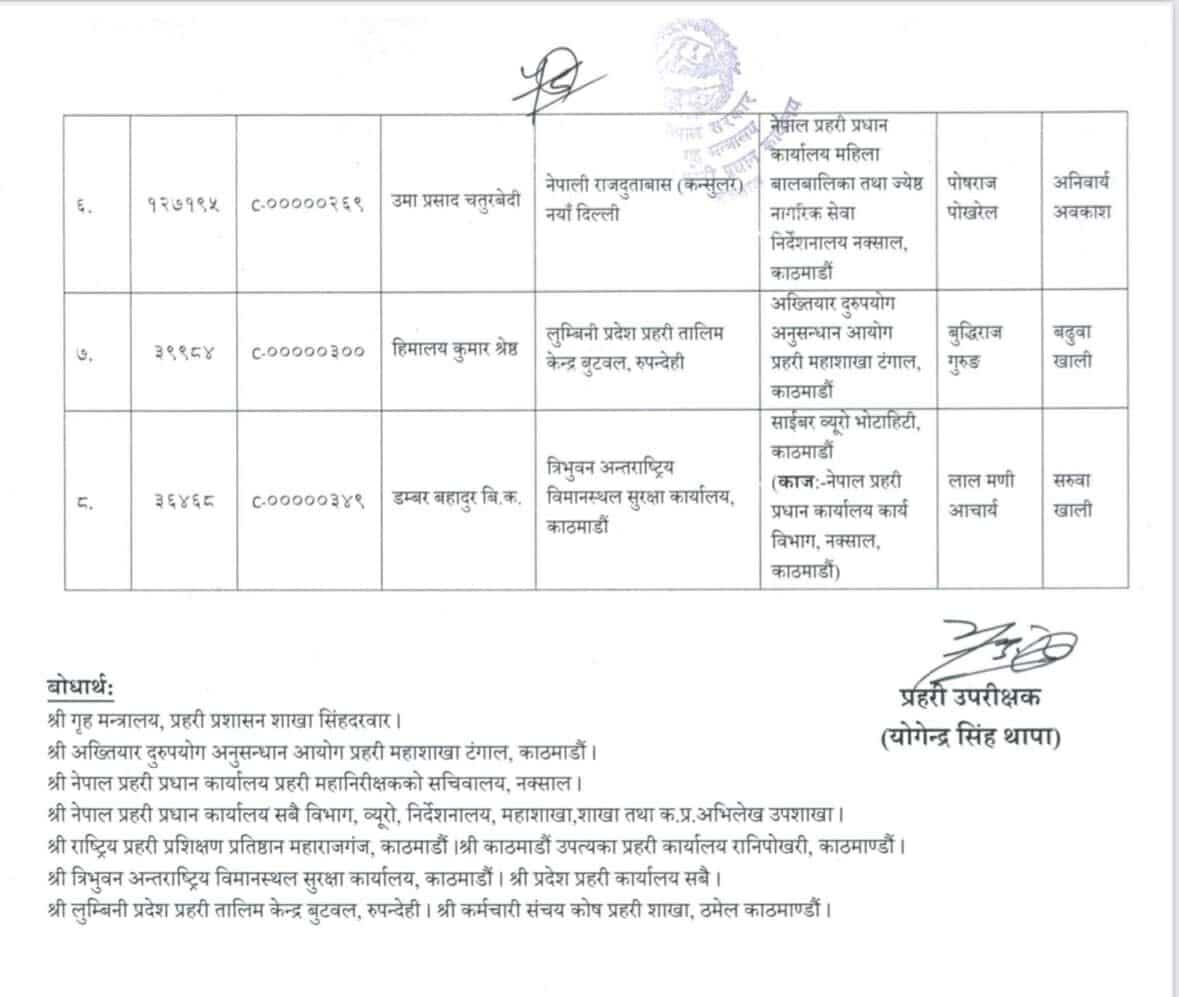 नेपाल सरकार
गृह मन्त्रालय
प्रहरी प्रधान कार्यालय
६.
१२७१९५
C-०००००२६९
उमा प्रसाद चतुरबेदी
नेपाली राजदुताबास (कन्सुलर)
नयाँ दिल्ली
नेपाल प्रहरी प्रधान
कार्यालय महिला
बालबालिका तथा ज्येष्ठ
नागरिक सेवा
निर्देशनालय नक्साल,
काठमाडौं
पोषराज
पोखरेल
अनिवार्य
अवकाश
७.
३९९८४
C-०००००३००
हिमालय कुमार श्रेष्ठ
लुम्बिनी प्रदेश प्रहरी तालिम
केन्द्र बुटवल, रुपन्देही
अख्तियार दुरुपयोग
अनुसन्धान आयोग
प्रहरी महाशाखा टंगाल,
काठमाडौं
बुद्धिराज
गुरुङ
बढुवा
खाली
८.
३६४६८
C-०००००३४९
डम्बर बहादुर बि.क.
त्रिभुवन अन्तराष्ट्रिय
विमानस्थल सुरक्षा कार्यालय,
काठमाडौं
साईबर व्यूरो भोटाहिटी,
काठमाडौं
(काज:-नेपाल प्रहरी
प्रधान कार्यालय कार्य
विभाग, नक्साल,
काठमाडौं)
लाल मणी
आचार्य
सरुवा
खाली
प्रहरी उपरीक्षक
(योगेन्द्र सिंह थापा)
बोधार्थ:
श्री गृह मन्त्रालय, प्रहरी प्रशासन शाखा सिंहदरवार।
श्री अख्तियार दुरुपयोग अनुसन्धान आयोग प्रहरी महाशाखा टंगाल, काठमाडौं।
श्री नेपाल प्रहरी प्रधान कार्यालय प्रहरी महानिरीक्षकको सचिवालय, नक्साल।
श्री नेपाल प्रहरी प्रधान कार्यालय सबै विभाग, व्यूरो, निर्देशनालय, महाशाखा,शाखा तथा क.प्र.अभिलेख उपशाखा।
श्री राष्ट्रिय प्रहरी प्रशिक्षण प्रतिष्ठान महाराजगंज, काठमाडौं।श्री काठमाडौं उपत्यका प्रहरी कार्यालय रानिपोखरी, काठमाण्डौं।
श्री त्रिभुवन अन्तराष्ट्रिय विमानस्थल सुरक्षा कार्यालय, काठमाडौं। श्री प्रदेश प्रहरी कार्यालय सबै।
श्री लुम्बिनी प्रदेश प्रहरी तालिम केन्द्र बुटवल, रुपन्देही। श्री कर्मचारी संचय कोष प्रहरी शाखा, ठमेल काठमाण्डौं।